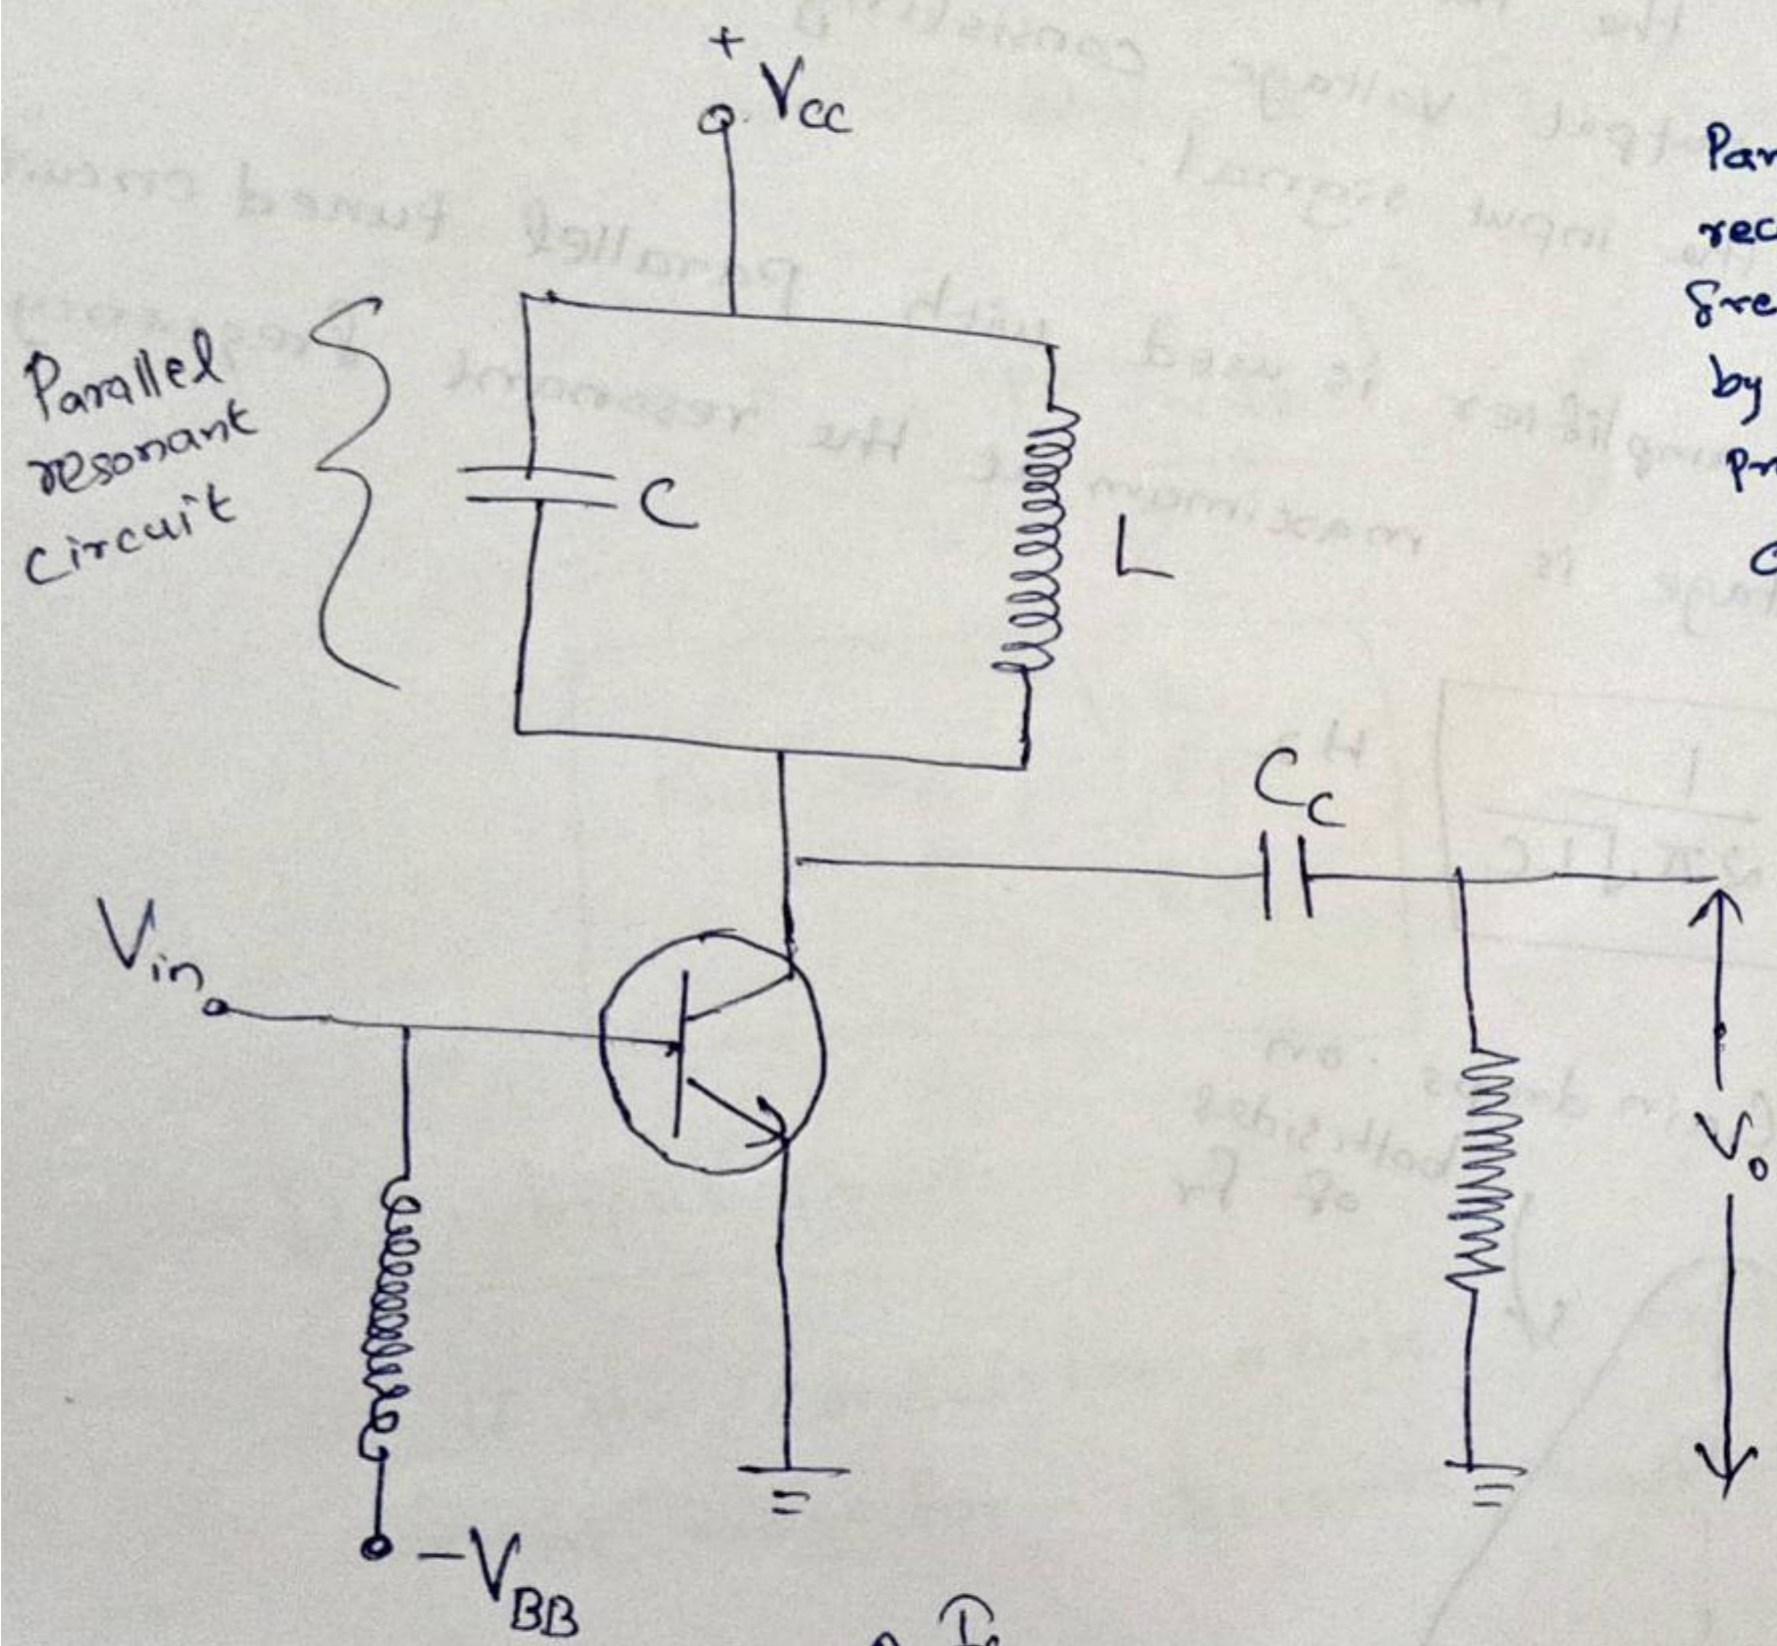 +
Vcc
Parallel
resonant
circuit
C
L
Cc
Vin
Vo
-VBB
Par
rec
fre
by
Pr